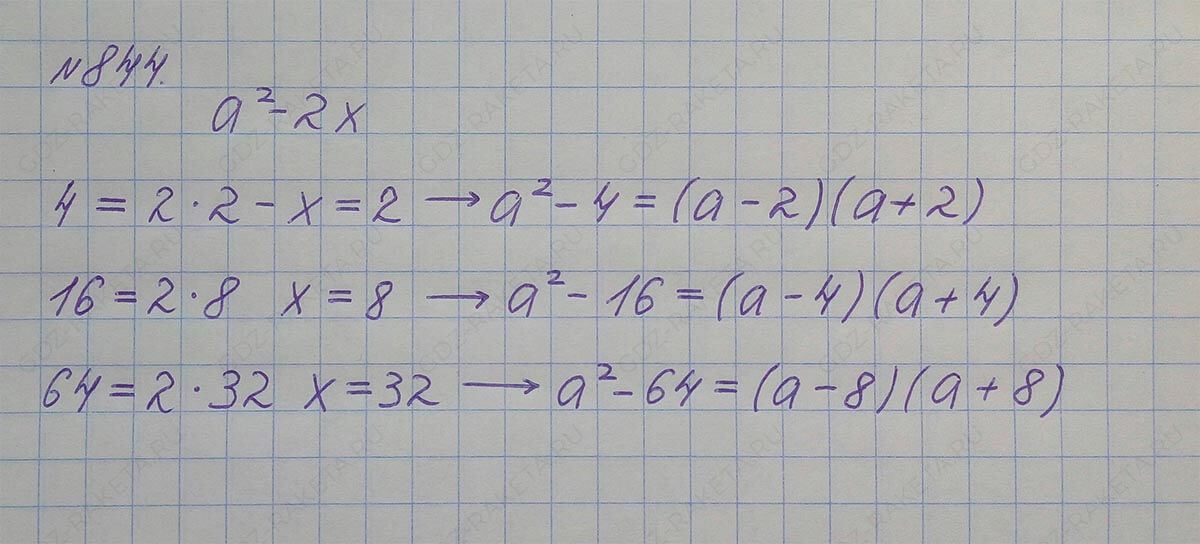 №844.
a²-2x
4=2·2-x=2 → a²-4=(a-2)(a+2)
16=2·8 x=8 → a²-16=(a-4)(a+4)
64=2·32 x=32 → a²-64=(a-8)(a+8)
GDZ-RAKETA.RU